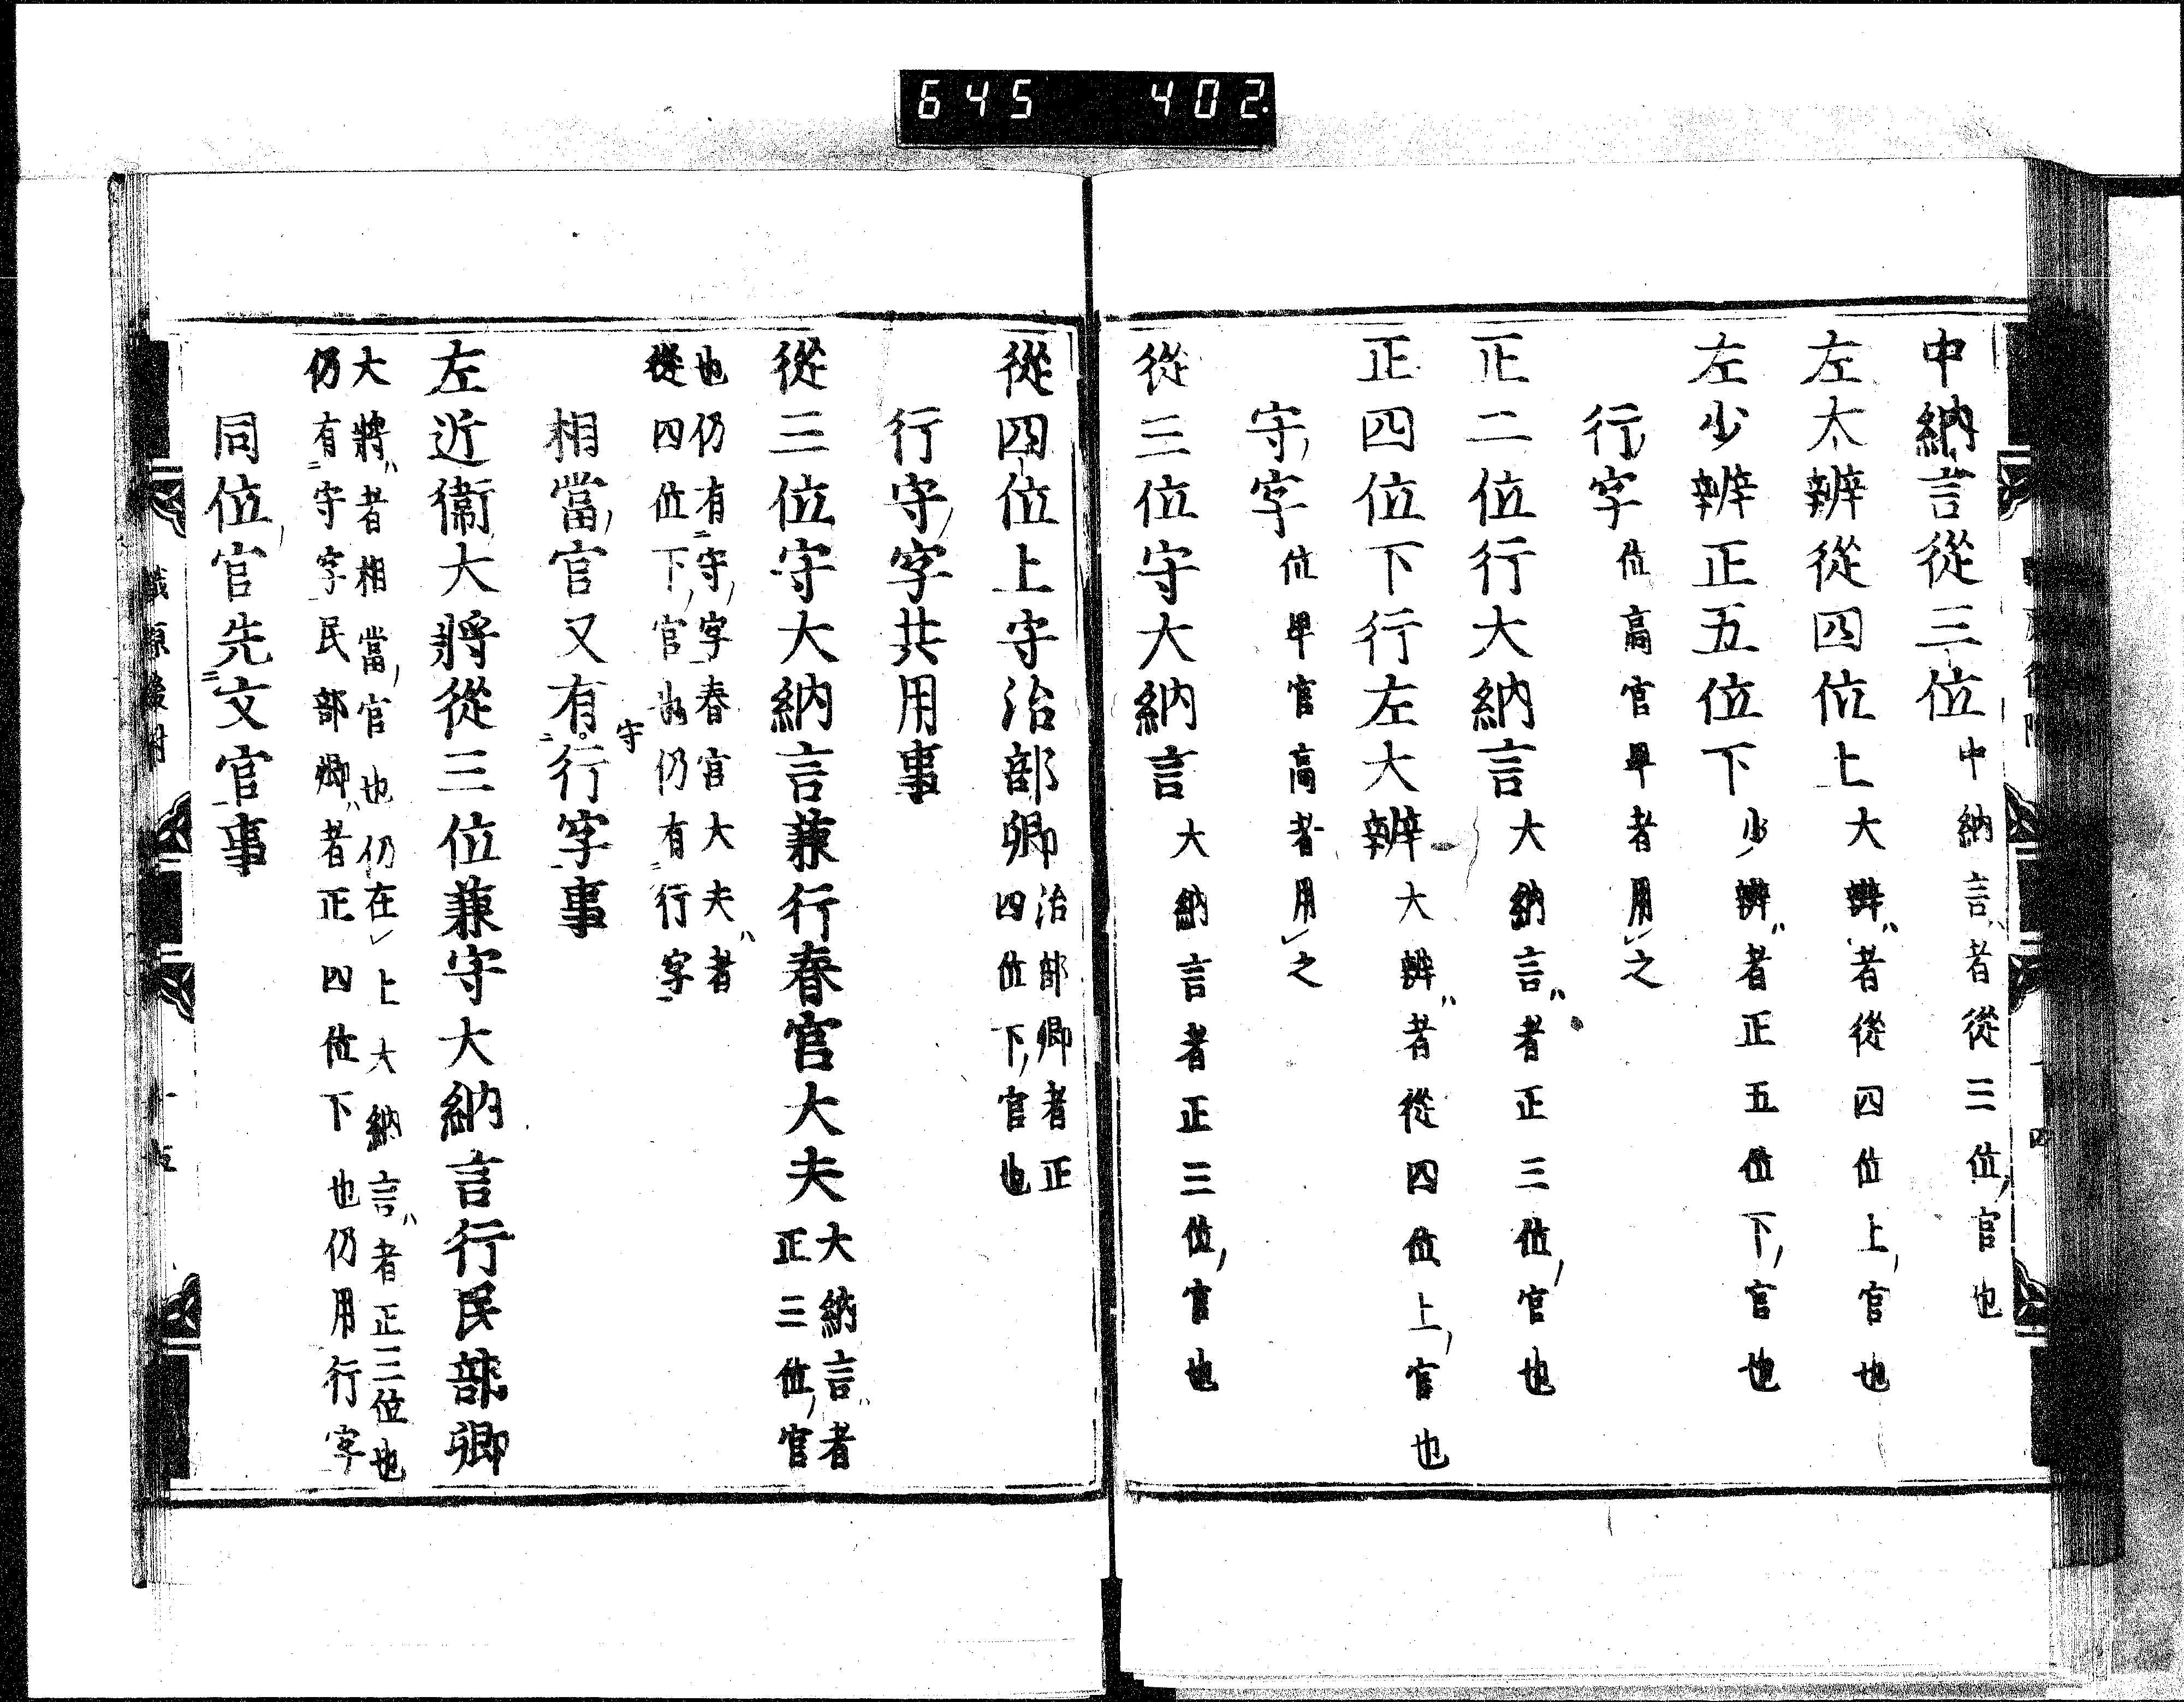 645 402
中納言從三位 中納言者從三位官也
左大辨從四位上 大辨者從四位上官也
左少辨正五位下 少辨者正五位下官也
行字 位高官卑者用之
正二位行大納言 大納言者正三位官也
正四位下行左大辨 大辨者從四位上官也
守字 位卑官高者用之
從三位守大納言 大納言者正三位官也
從四位上守治部卿 治部卿者正
四位下官也
行守字共用事
從三位守大納言兼行春官大夫 大納言者
正三位官
也仍有守字春官大夫者
從四位下官也仍有行字
相當官又有行字事
守
左近衞大將從三位兼守大納言行民部卿
大將者相當官也仍在上大納言者正三位也
仍有守字民部卿者正四位下也仍用行字
同位官先文官事
職原後附
十五